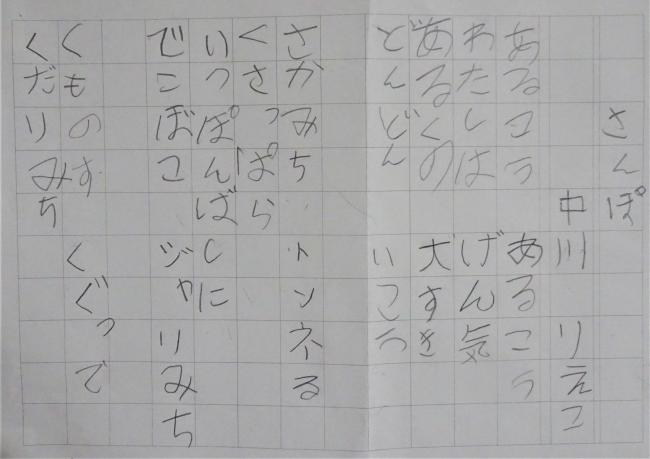 さんぽ
中川 りえこ
あるこう あるこう
わたしは げん気
あるくの 大すき
どんどん いこう
さかみち トンネる
くさっぱら
いっぽんばしに
でこぼこ ジャリみち
くものす くぐって
くだりみち